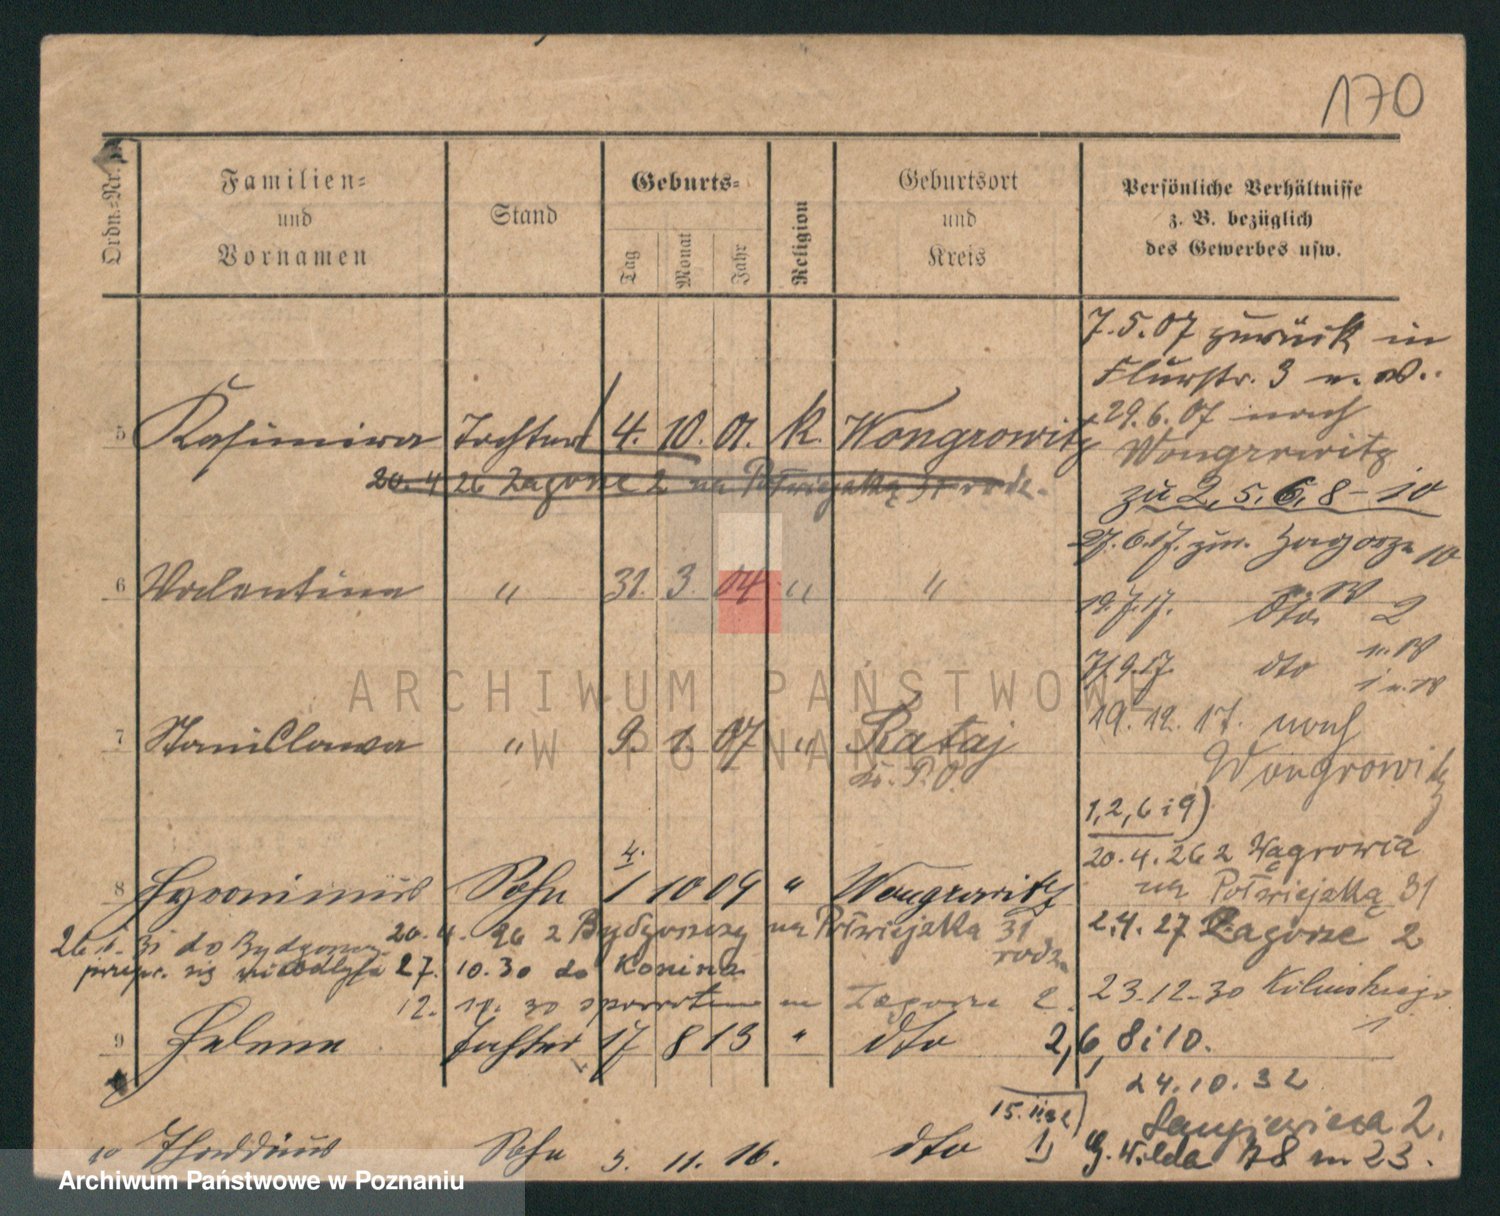 170
Ordn.-Nr.
Familien-
und
Vornamen
Stand
Geburts-
Tag
Monat
Jahr
Religion
Geburtsort
und
Kreis
Persönliche Verhältnisse
z. B. bezüglich
des Gewerbes usw.
7.5.07 zurück in
Flurstr. 3 u. W.
29.6.07 nach
Wongrowitz
5 Kasimira Tochter 4. 10. 01. K. Wongrowitz
20. 4 26 Zagorze 2 na Półwiejską 31 rodz.
zu 2, 5, 6, 8 - 10
27.6.17. Zagorze 10
6 Valentina " 31. 3. 04 " "
19.7.17. dto. 2
7.9.17. dto
7 Stanislawa " 9. 1. 07 " Rataj
Kr. P.O.
19.12.17. nach
Wongrowitz
1, 2, 6 i 9)
20.4.26 z Wągrowca
na Półwiejską 31
4.
8 Hyronimus Sohn 1 10 09 " Wongrowitz
20. 4. 26 z Bydgoszczy na Półwiejska 31
rodz.
2.4.27 Zagorze 2
do Bydgoszczy
27. 10.30 do Konina
12. 30 z powrotem Zagorze 2.
23.12.30 Kilinskiego
1
9 Helena Tochter 17 8 13 " dto
2, 6, 8 i 10.
24.10.32
2.
10 Thaddäus Sohn 3. 11. 16. dto
1)
G. Wilda 78 m 23.
ARCHIWUM PAŃSTWOWE
W POZNANIU
Archiwum Państwowe w Poznaniu